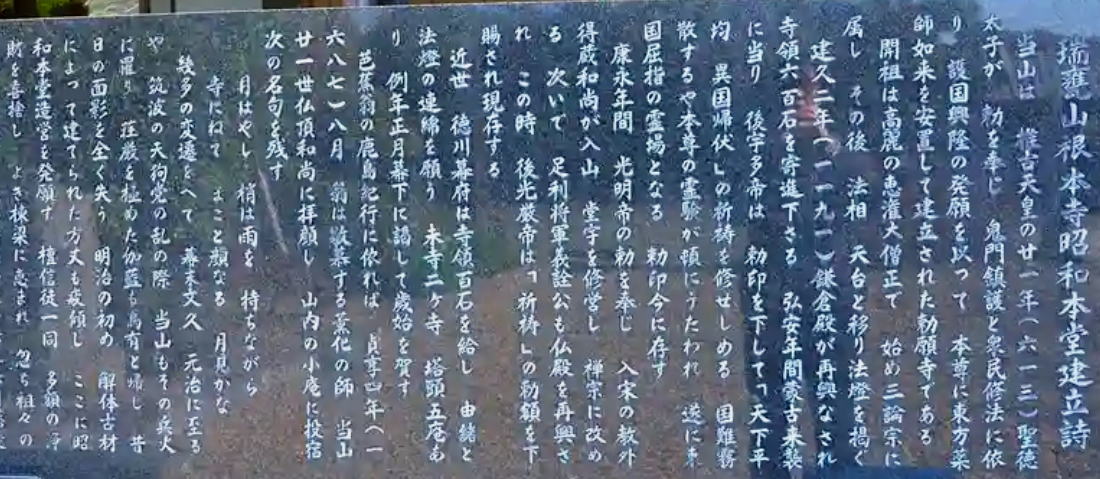 瑞甕山根本寺昭和本堂建立誌
当山は 推古天皇の廿一年(六一三)聖徳
太子が 勅を奉じ 鬼門鎮護と衆民修法に依
り 護国興隆の発願を以って 本尊に東方薬
師如来を安置して建立された勅願寺である
開祖は高麗の恵灌大僧正で 始め三論宗に
属し その後 法相 天台と移り法燈を掲ぐ
建久二年(一一九一)鎌倉殿が再興なされ
寺領六百石を寄進下さる 弘安年間蒙古来襲
に当り 後宇多帝は 勅印を下して「天下平
均 異国帰伏」の祈祷を修せしめる 国難霧
散するや本尊の霊験が頓にうたわれ 遂に東
国屈指の霊場となる 勅印今に存す
康永年間 光明帝の勅を奉じ 入宋の教外
得蔵和尚が入山 堂宇を修営し 禅宗に改め
る 次いで 足利将軍義詮公も仏殿を再興さ
れ この時 後光厳帝は「祈祷」の勅額を下
賜され現存する
近世 徳川幕府は寺領百石を給し 由緒と
法燈の連綿を願う 末寺二ケ寺 塔頭五庵あ
り 例年正月幕下に謁して歳始を賀す
芭蕉翁の鹿島紀行に依れば 貞享四年(一
六八七)八月 翁は敬慕する薫化の師 当山
廿一世仏頂和尚に拝顔し 山内の小庵に投宿
次の名句を残す
月はやし 梢は雨を 持ちながら
寺にねて まこと顔なる 月見かな
幾多の変遷をへて 幕末文久 元治に至る
や 筑波の天狗党の乱の際 当山もその兵火
に罹り 荘厳を極めた伽藍も烏有と帰し 昔
日の面影を全く失う 明治の初め 解体古材
によって建てられた方丈も疲頽し ここに昭
和本堂造営を発願す 檀信徒一同 多額の浄
財を喜捨し よき棟梁に恵まれ 忽ち祖々の